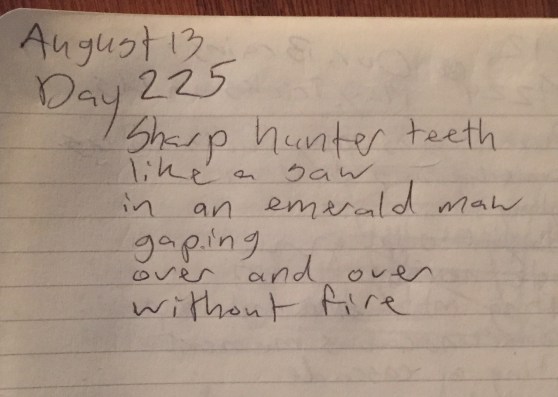 August 13
Day 225
Sharp hunter teeth
like a saw
in an emerald maw
gaping
over and over
without fire